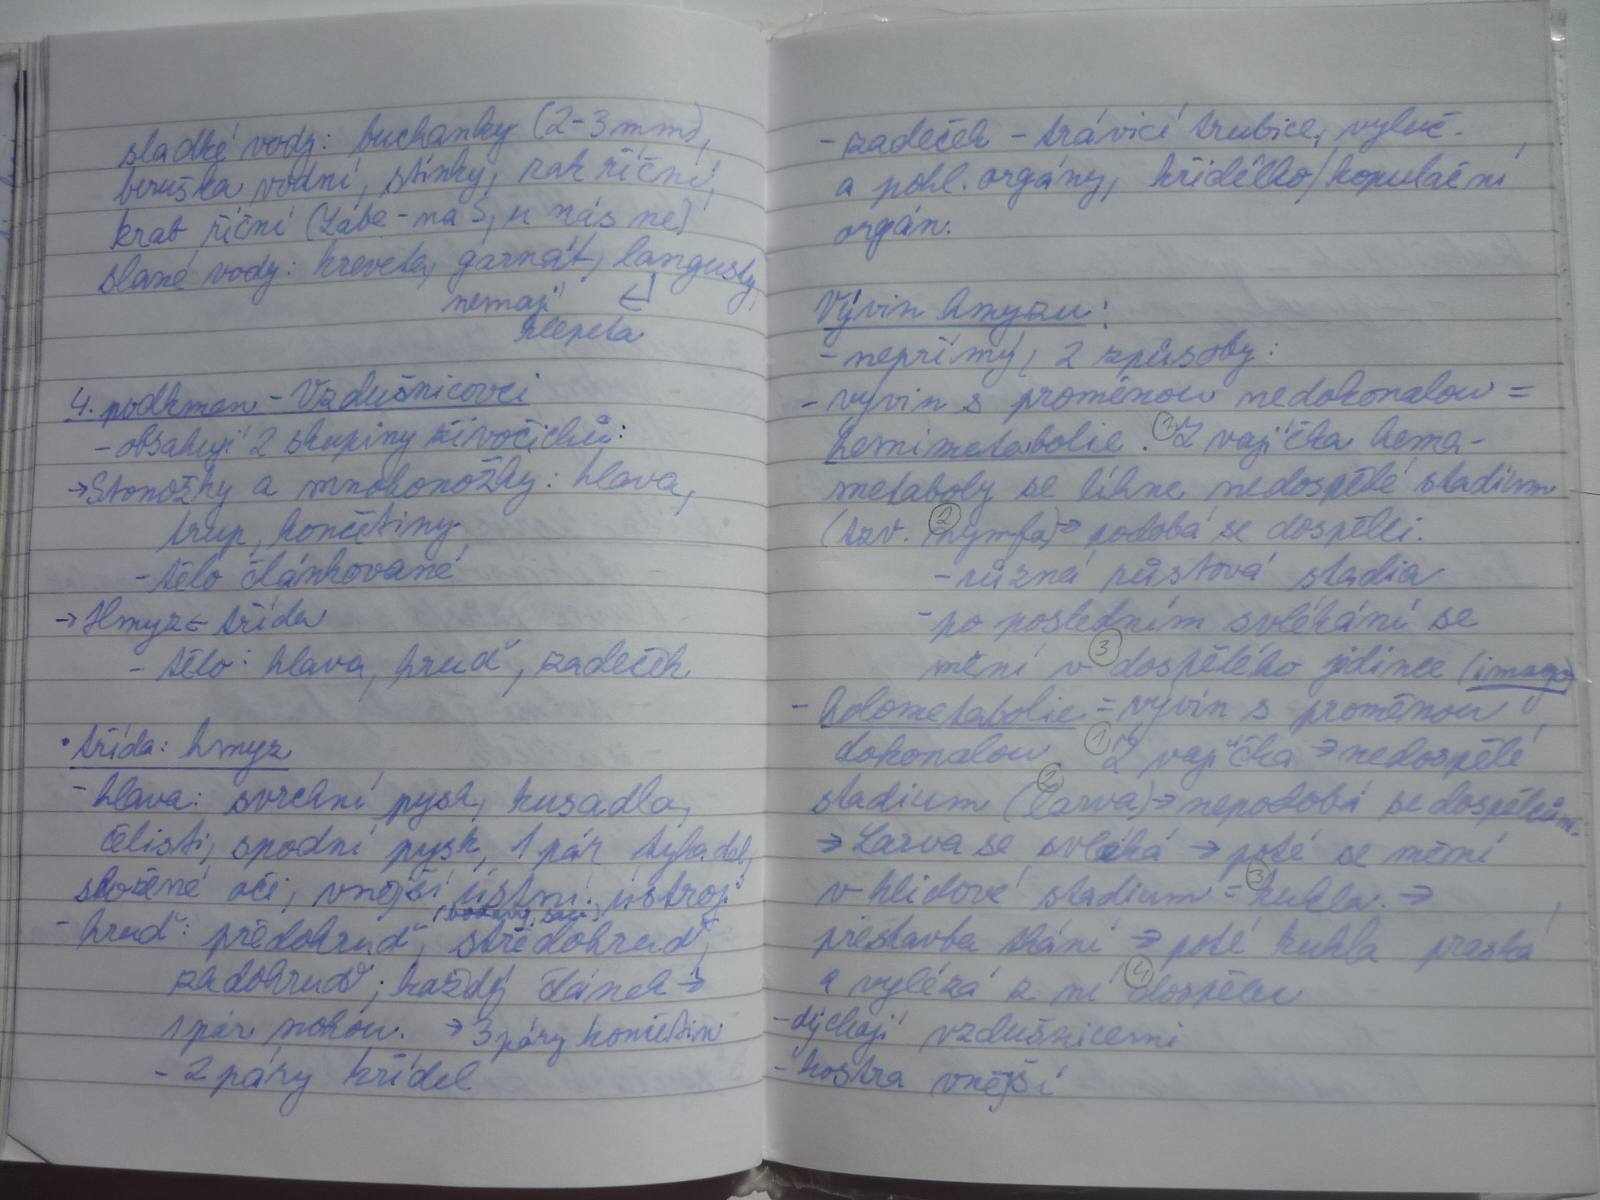 sladké vody: buchanky (2-3mm),
beruška vodní, stínky, rak říční,
krab říční (Labe - na S, u nás ne)
slané vody: kreveta, garnát, langusty
nemají
klepeta
4. podkmen - Vzdušnicovci
- obsahují 2 skupiny živočichů:
→ Stonožky a mnohonožky: hlava,
trup, končetiny
- tělo článkované
→ Hmyz ← třída
- tělo: hlava, hruď, zadeček
• třída: hmyz
- hlava: svrchní pysk, kusadla,
čelisti, spodní pysk, 1 pár tykadel,
složené oči, vnější ústní ústrojí
- hruď: předohruď, středohruď,
zadohruď; každý článek →
1 pár nohou. → 3 páry končetin
- 2 páry křídel
- zadeček - trávicí trubice, vyluč.
a pohl. orgány, křidélko/kopulační
orgán.
Vývin hmyzu:
- nepřímý, 2 způsoby:
- vývin s proměnou nedokonalou =
hemimetabolie. ① Z vajíčka hema-
metaboly se líhne nedospělé stadium
(tzv. ② nymfa) → podobá se dospělci.
- různá růstová stadia
- po posledním svlékání se
mění v ③ dospělého jedince (imago)
- holometabolie = vývin s proměnou
dokonalou ① Z vajíčka → nedospělé
stadium (② larva) → nepodobí se dospělcům.
→ Larva se svléká → poté se mění
v klidové stadium = ③ kukla. →
přestavba tkání → poté kukla praská
a vylézá z ní ④ dospělec
- dýchají vzdušnicemi
- kostra vnější